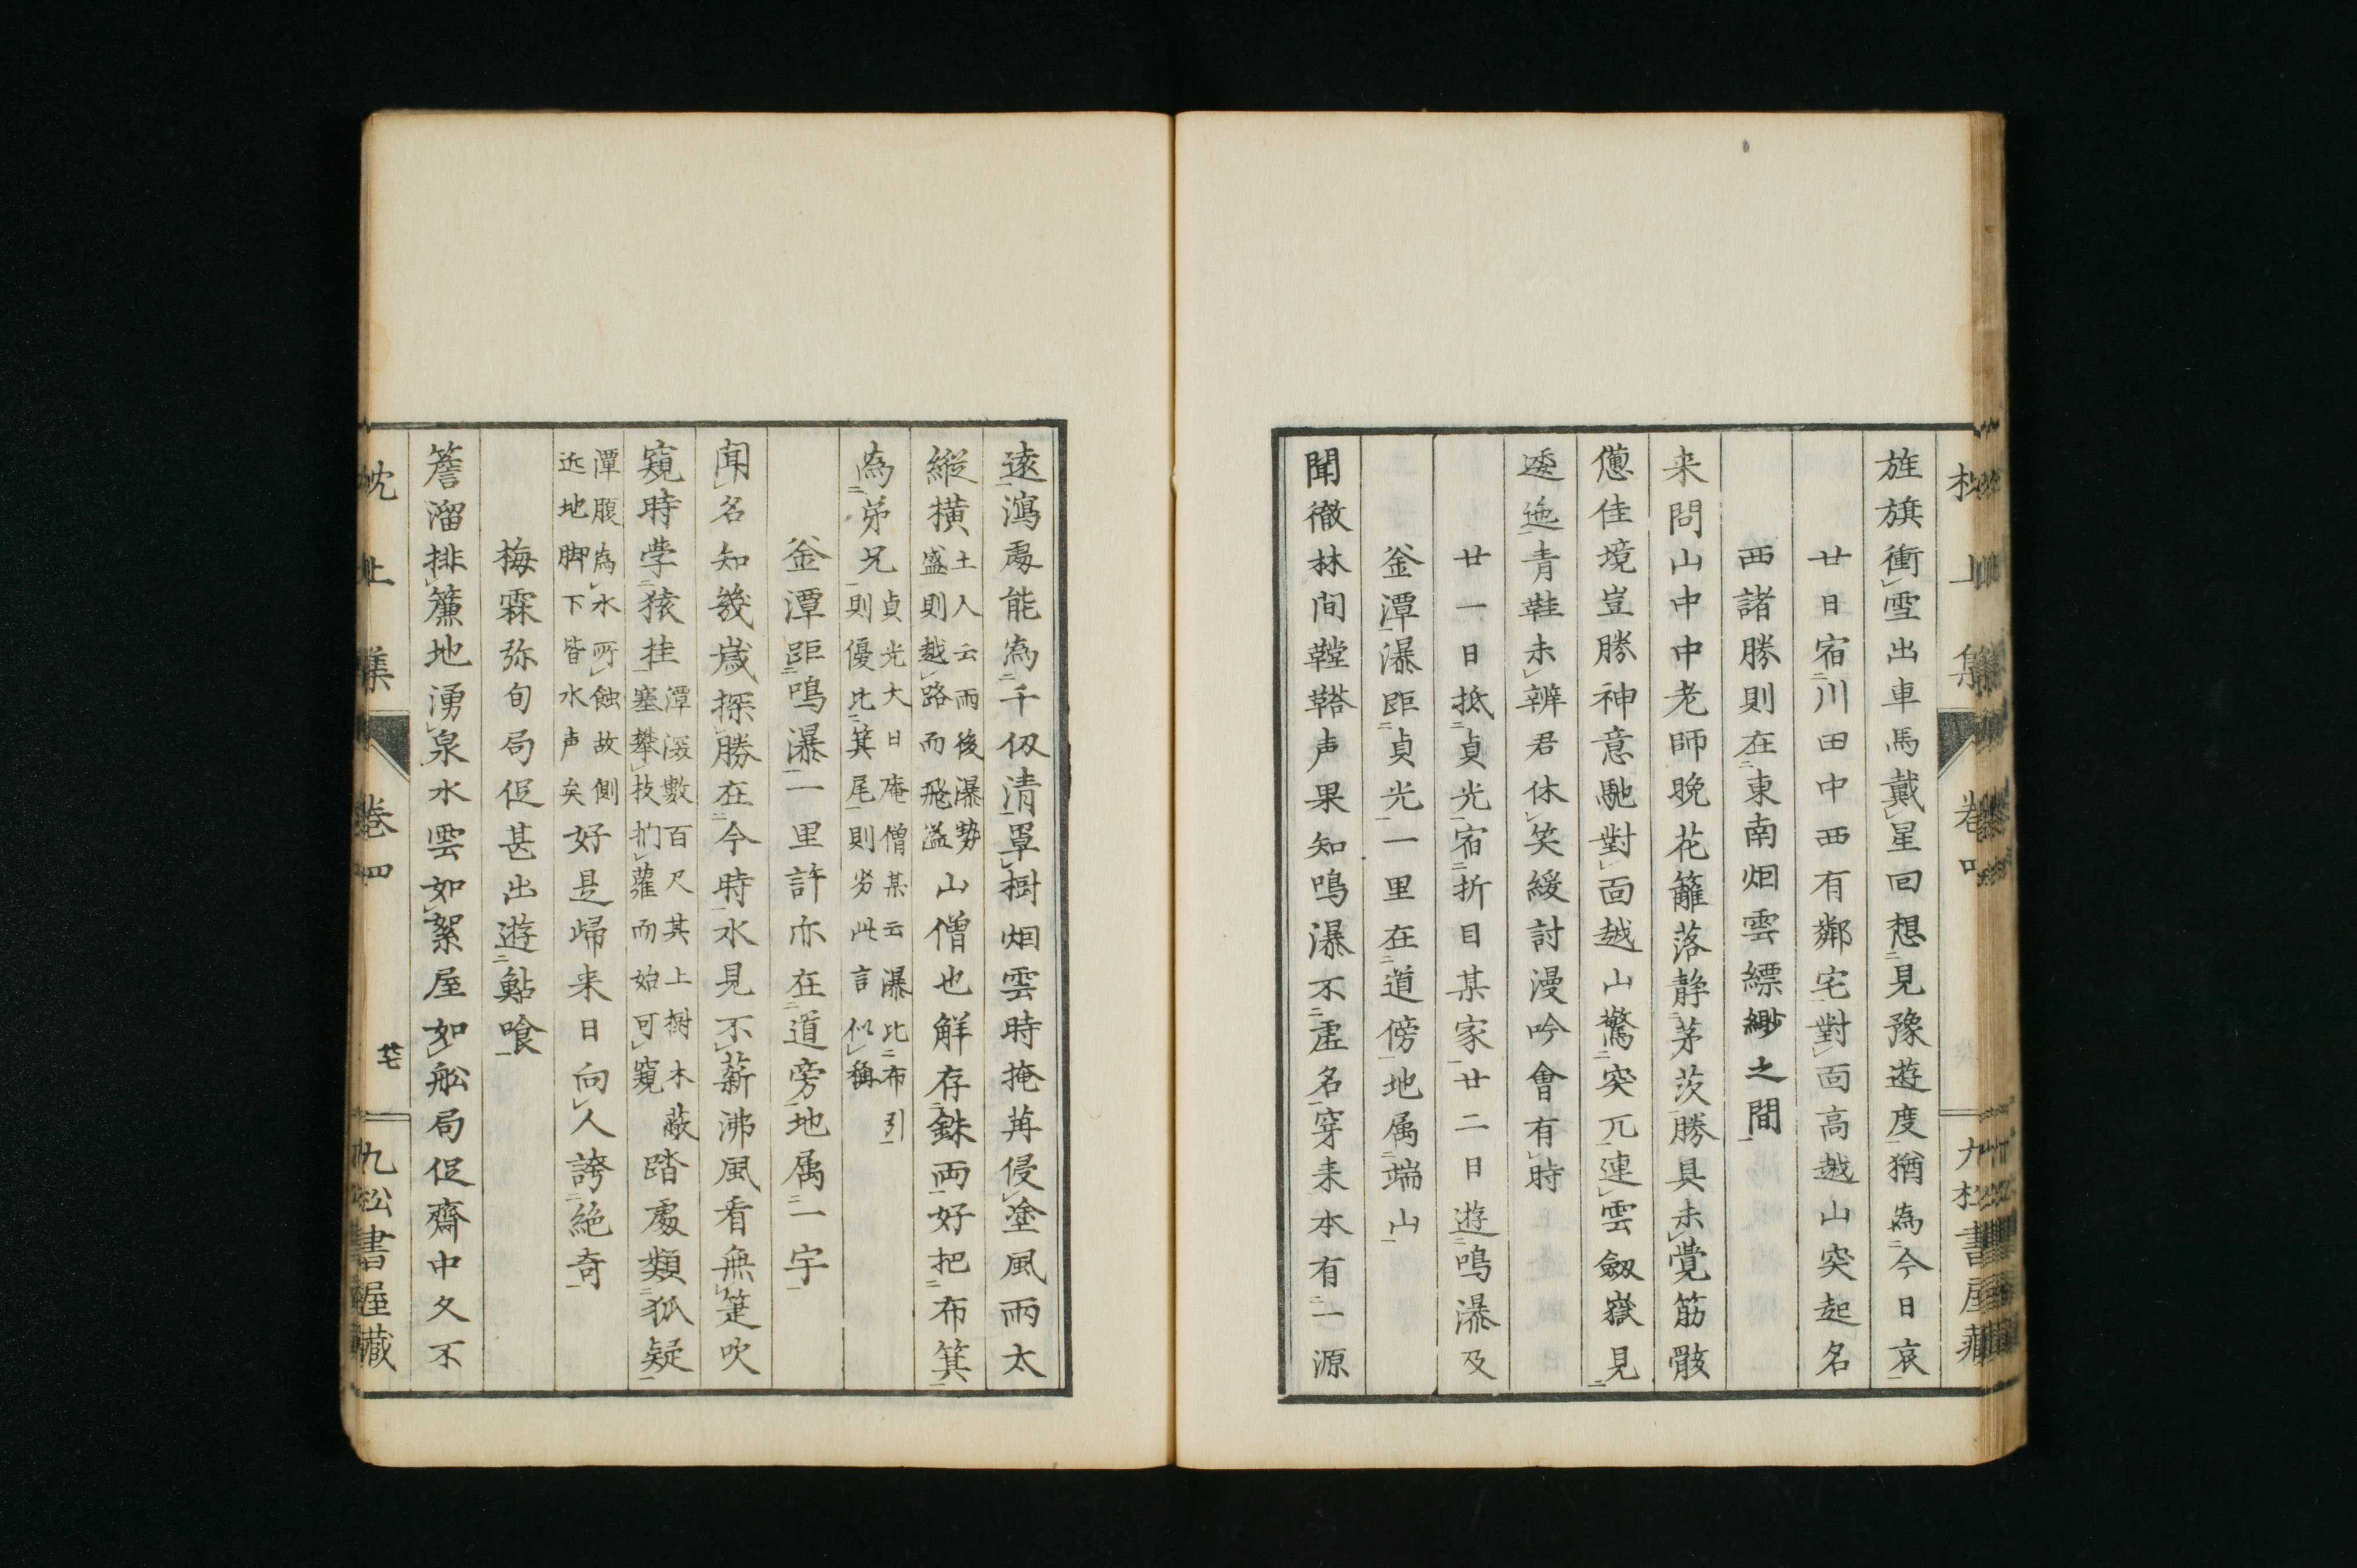 旌旗衝雪出車馬戴星回想見豫遊度猶為今日哀
廿日宿川田中西有鄰宅對面高越山突起名
西諸勝則在東南烟雲縹緲之間
来問山中中老師晩花籬落静茅茨勝具未覚筋骸
憊佳境豈勝神意馳對面越山驚突兀連雲劔嶽見
逶迤青鞋未辨君休笑緩討漫吟會有時
廿一日抵貞光宿折目某家廿二日遊鳴瀑及
釜潭瀑距貞光一里在道傍地属端山
聞徹林間鞺鞳声果知鳴瀑不虚名穿来本有一源
遠瀉處能為千仭清罩樹烟雲時掩苒侵塗風雨太
縦横土人云雨後瀑勢盛則越路而飛溢山僧也解存銖両好把布箕
為弟兄貞光大日庵僧某云瀑比布引則優比箕尾則劣此言似称
釜潭距鳴瀑一里許亦在道旁地属一宇
聞名知幾歳探勝在今時水見不薪沸風看無箑吹
窺時学猿挂潭深數百尺其上樹木蔽塞攀枝捫蘿而始可窺踏處類狐疑
潭腹為水所蝕故側近地脚下皆水声矣好是帰来日向人誇絶奇
梅霖弥旬局促甚出遊鮎喰
簷溜排簾地湧泉水雲如絮屋如舩局促齋中久不
枕上集
卷四
九松書屋藏